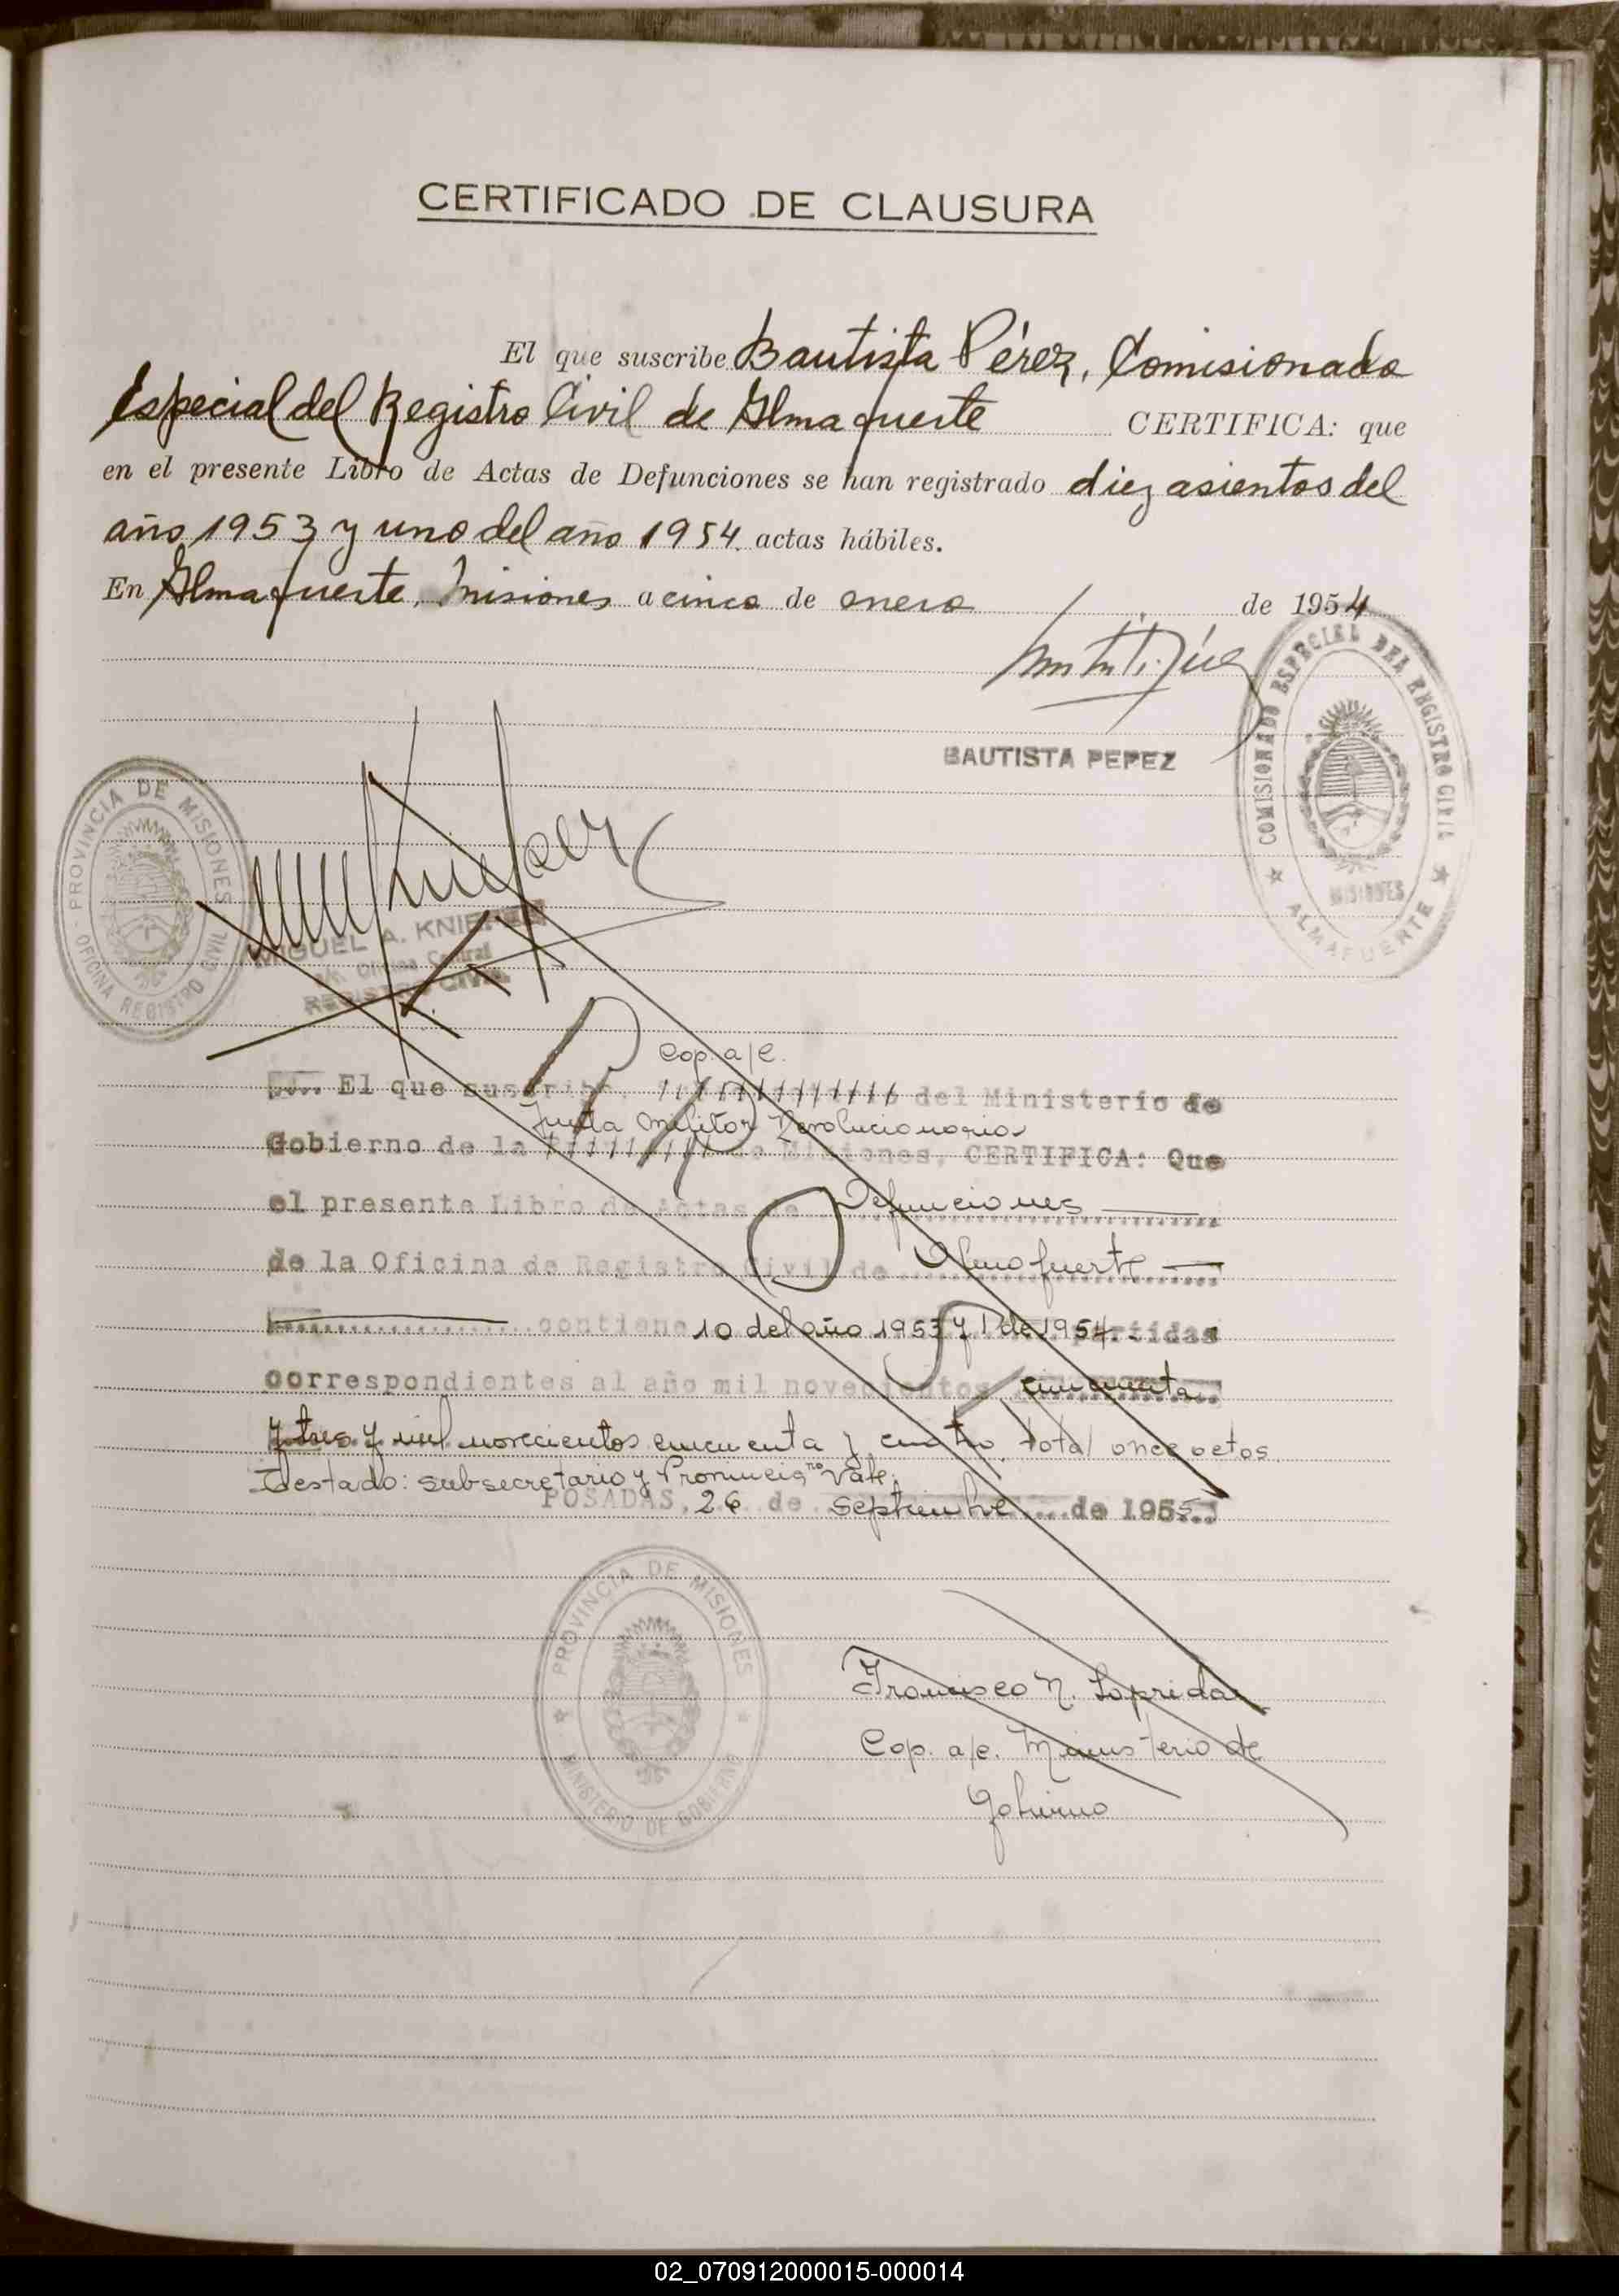 CERTIFICADO DE CLAUSURA
El que suscribe Bautista Pérez, Comisionado
Especial del Registro Civil de Almafuerte CERTIFICA: que
en el presente Libro de Actas de Defunciones se han registrado diez asientos del
año 1953 y uno del año 1954. actas hábiles.
En Almafuerte, Misiones a cinco de enero de 1954
BAUTISTA PEPEZ
COMISIONADO ESPECIAL DEL REGISTRO CIVIL
MISIONES
ALMAFUERTE
PROVINCIA DE MISIONES
OFICINA REGISTRO CIVIL
MIGUEL A. KNIE
Oficina Central
REGISTRO CIVIL
Cop. a/c.
El que suscribe, del Ministerio de
Junta Militar Revolucionaria
Gobierno de la de Misiones, CERTIFICA: Que
el presente Libro de Actas de Defunciones
de la Oficina de Registro Civil de Almafuerte
contiene 10 del año 1953 y 1 de 1954. partidas
correspondientes al año mil novecientos cincuenta
y tres y mil novecientos cincuenta y cuatro. total once actas.
Testado: subsecretario y Provincia, no Vale.
POSADAS, 26 de septiembre de 1955
PROVINCIA DE MISIONES
MINISTERIO DE GOBIERNO
Francisco N. Laprida
Cop. a/c. Ministerio de
Gobierno
02_070912000015-000014